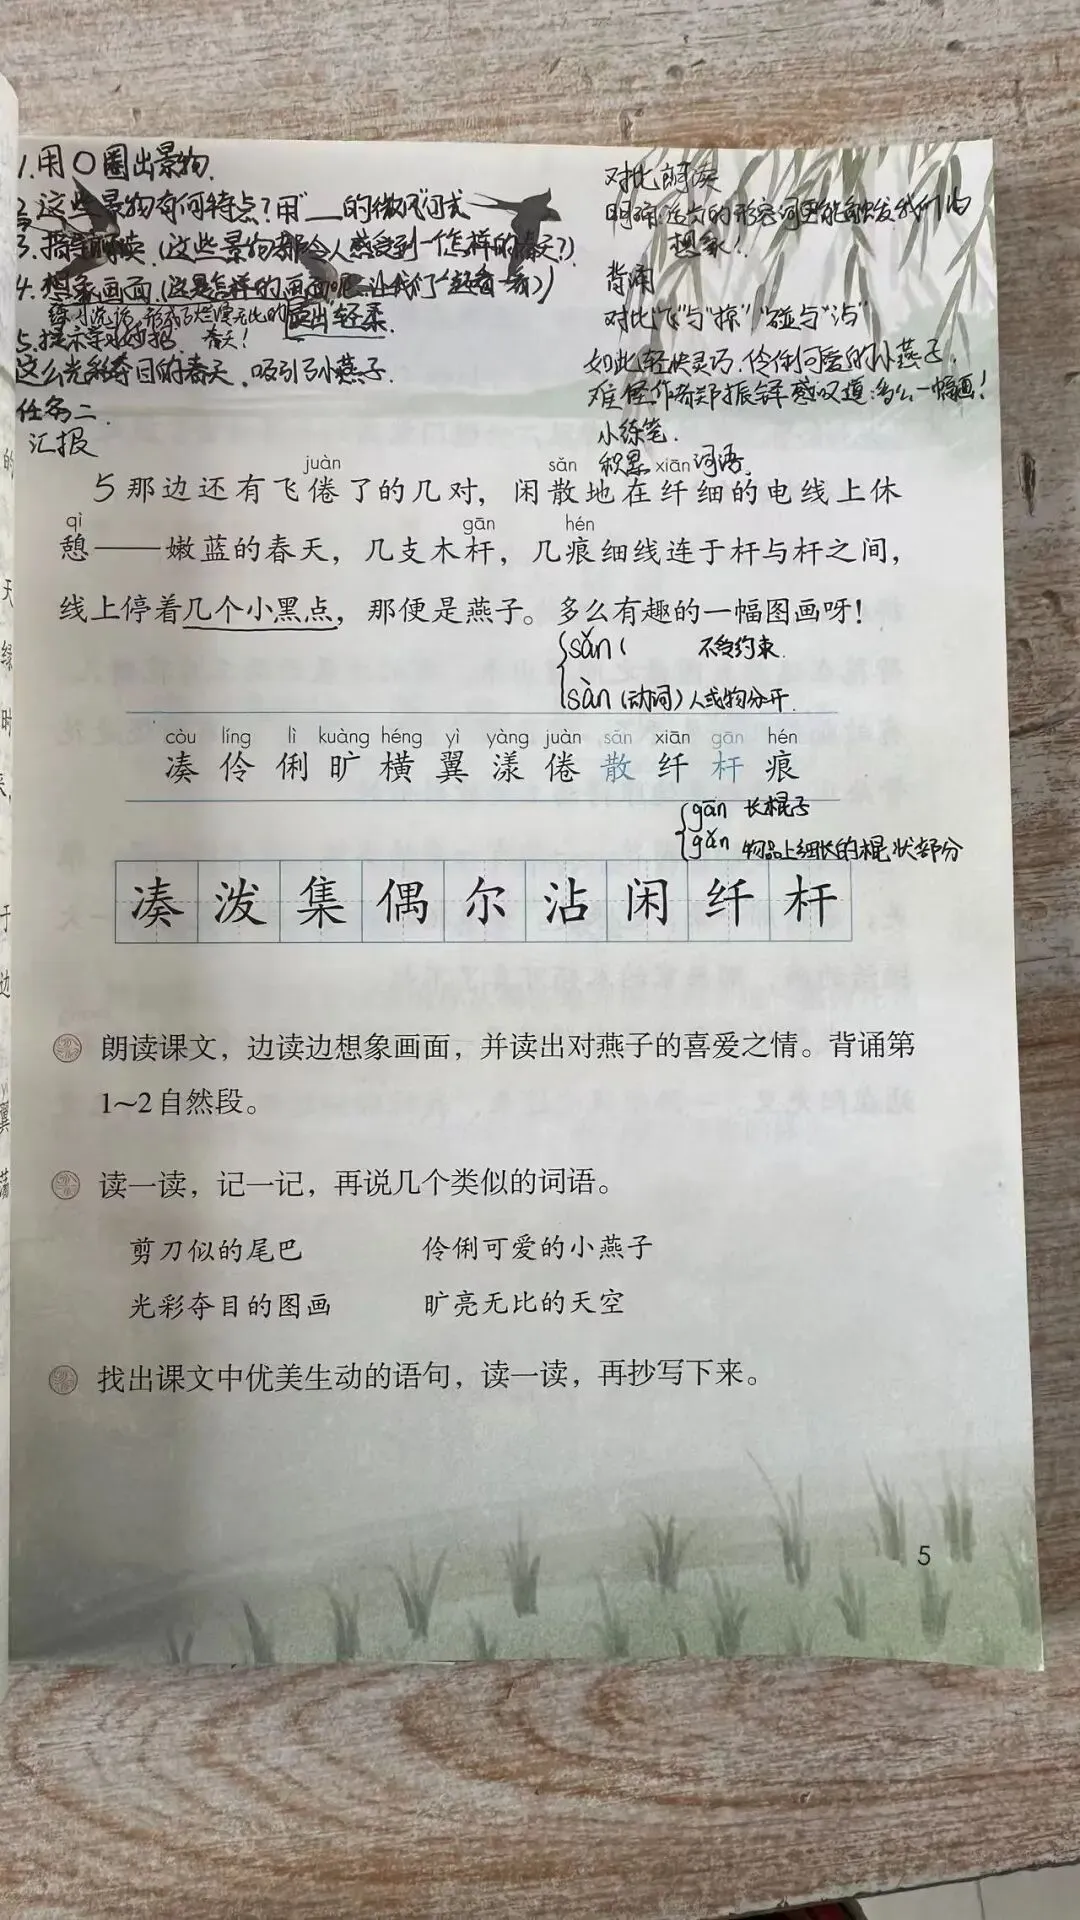 1.用○圈出景物.
2.这些景物有何特点?用"__的微风"句式
3.指导朗读.(这些景物都令人感受到一个怎样的春天?)
4.想象画面.(这是怎样的画面呢,让我们一起看一看)
读出轻柔.
春天!
这么光彩夺目的春天.吸引了小燕子.
任务二.
汇报
对比朗读
的形容词更能触发我们的
想象!
背诵
对比"飞"与"掠""碰与"沾"
如此轻快灵巧.伶俐可爱的小燕子.
难怪作者郑振铎感叹道:多么一幅画!
小练笔.
积累 词语.
juàn sǎn xiān
5 那边还有飞倦了的几对，闲散地在纤细的电线上休
qì gān hén
憩——嫩蓝的春天，几支木杆，几痕细线连于杆与杆之间，
线上停着几个小黑点，那便是燕子。多么有趣的一幅图画呀！
sǎn( 不受约束.
sàn(动词)人或物分开.
còu líng lì kuàng héng yì yàng juàn sǎn xiān gān hén
凑 伶 俐 旷 横 翼 漾 倦 散 纤 杆 痕
gān 长棍子
gǎn 物品上细长的棍状部分
凑 泼 集 偶 尔 沾 闲 纤 杆
朗读课文，边读边想象画面，并读出对燕子的喜爱之情。背诵第
1~2自然段。
读一读，记一记，再说几个类似的词语。
剪刀似的尾巴 伶俐可爱的小燕子
光彩夺目的图画 旷亮无比的天空
找出课文中优美生动的语句，读一读，再抄写下来。
5